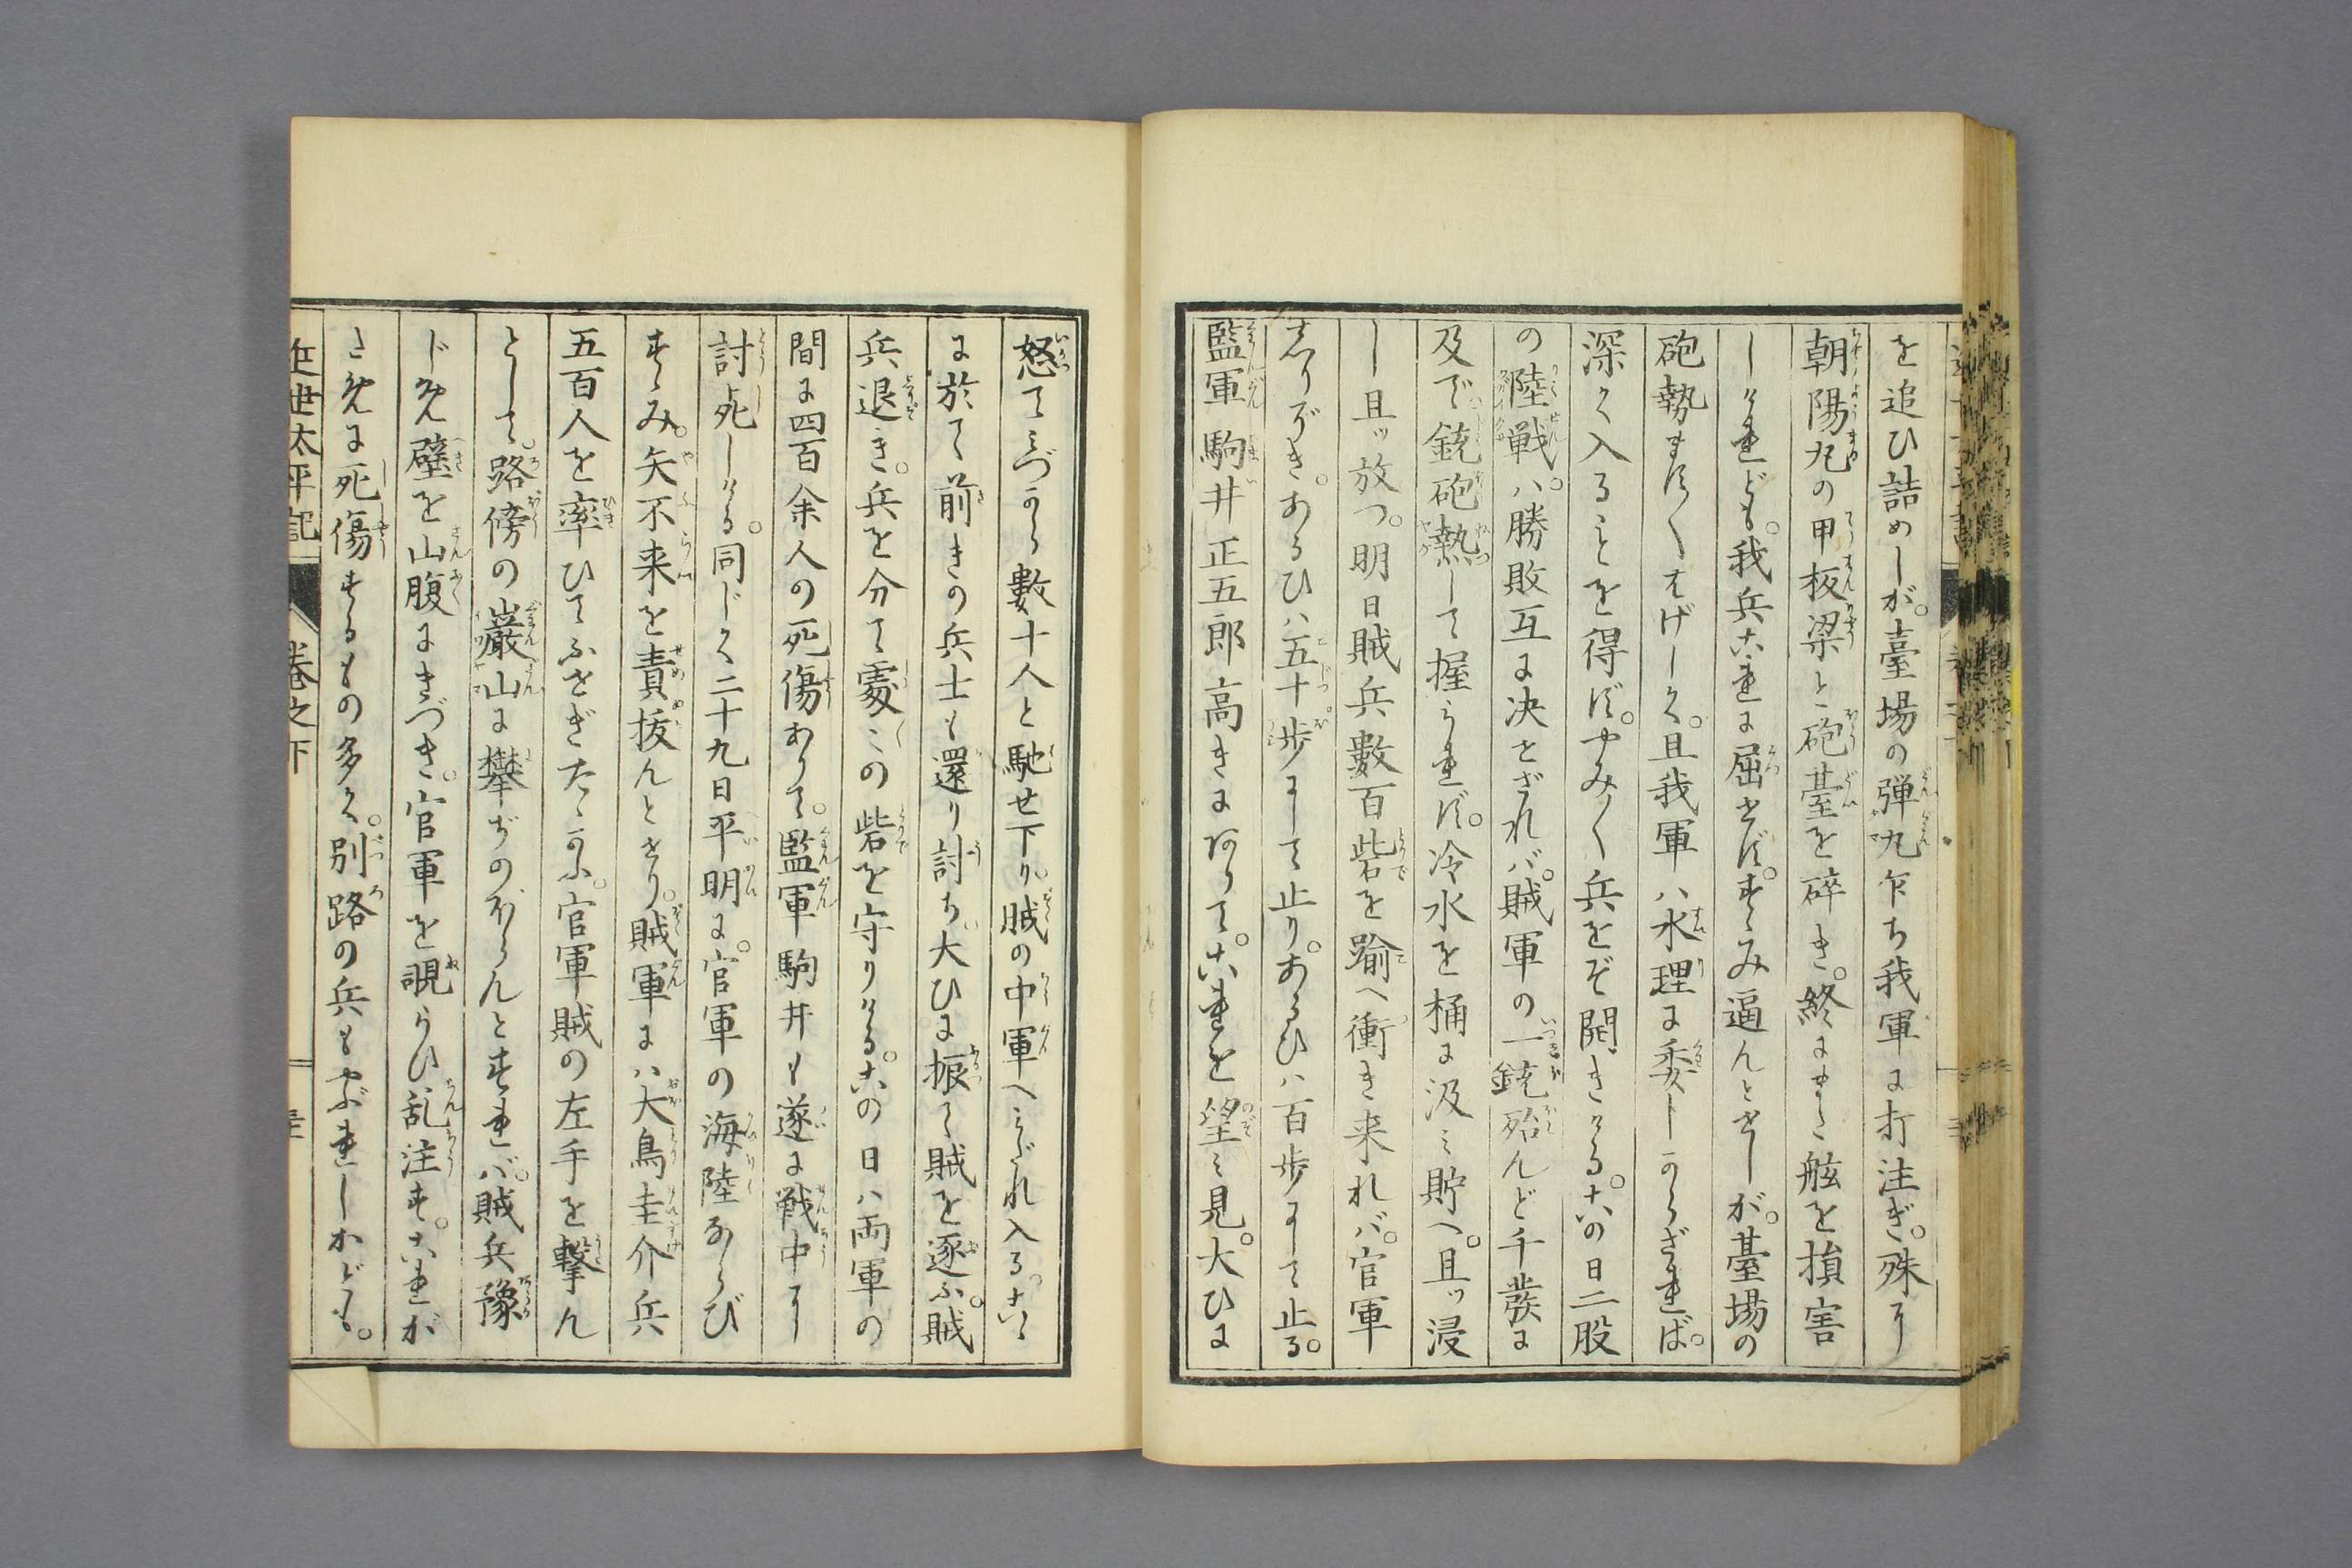 を追ひ詰めしが。臺場の弾丸乍ち我軍に打注ぎ。殊に
朝陽丸の甲板梁と砲䑓を碎き。終にまた舷を損害
しければども。我兵これに屈せず。すゝみ逼んとせしが。䑓場の
砲勢ます〱はげしく。且我軍ハ水理に委しからざれば。
深く入ることを得ず。やみ〱兵をぞ開きける。この日二股
の陸戦ハ。勝敗互に决せざれバ。賊軍の一銃殆んど千發に
及で銃砲熱して握られず。冷水を桶に汲ミ貯へ。且ッ浸
し且ッ放つ。明日賊兵數百砦を踰へ衝き来れバ。官軍
志りぞき。あるひハ五十歩にして止り。あるひハ百歩にして止る。
監軍駒井正五郎高きに在りて。これを望ミ見。大ひに
怒てミづから數十人と馳せ下り。賊の中軍へミだれ入る。こゝ
に於て前きの兵士も還り討ち。大ひに振て賊を逐ふ。賊
兵退き。兵を分て䖏〻の砦を守りける。この日ハ両軍の
間に四百余人の死傷ありて。監軍駒井も遂に戦中に
討死しける。同じく二十九日平明に。官軍の海陸ならび
すゝみ。矢不来を責抜んとせり。賊軍にハ大鳥圭介兵
五百人を率ひてふせぎたゝかふ。官軍賊の左手を撃ん
として。路傍の巖山に攀ぢのぼらんとすれバ。賊兵豫
じめ壁を山腹にきづき。官軍を覗らひ乱注す。これが
ために死傷するもの多く。別路の兵もやぶれしかども。
近世太平記 巻之下